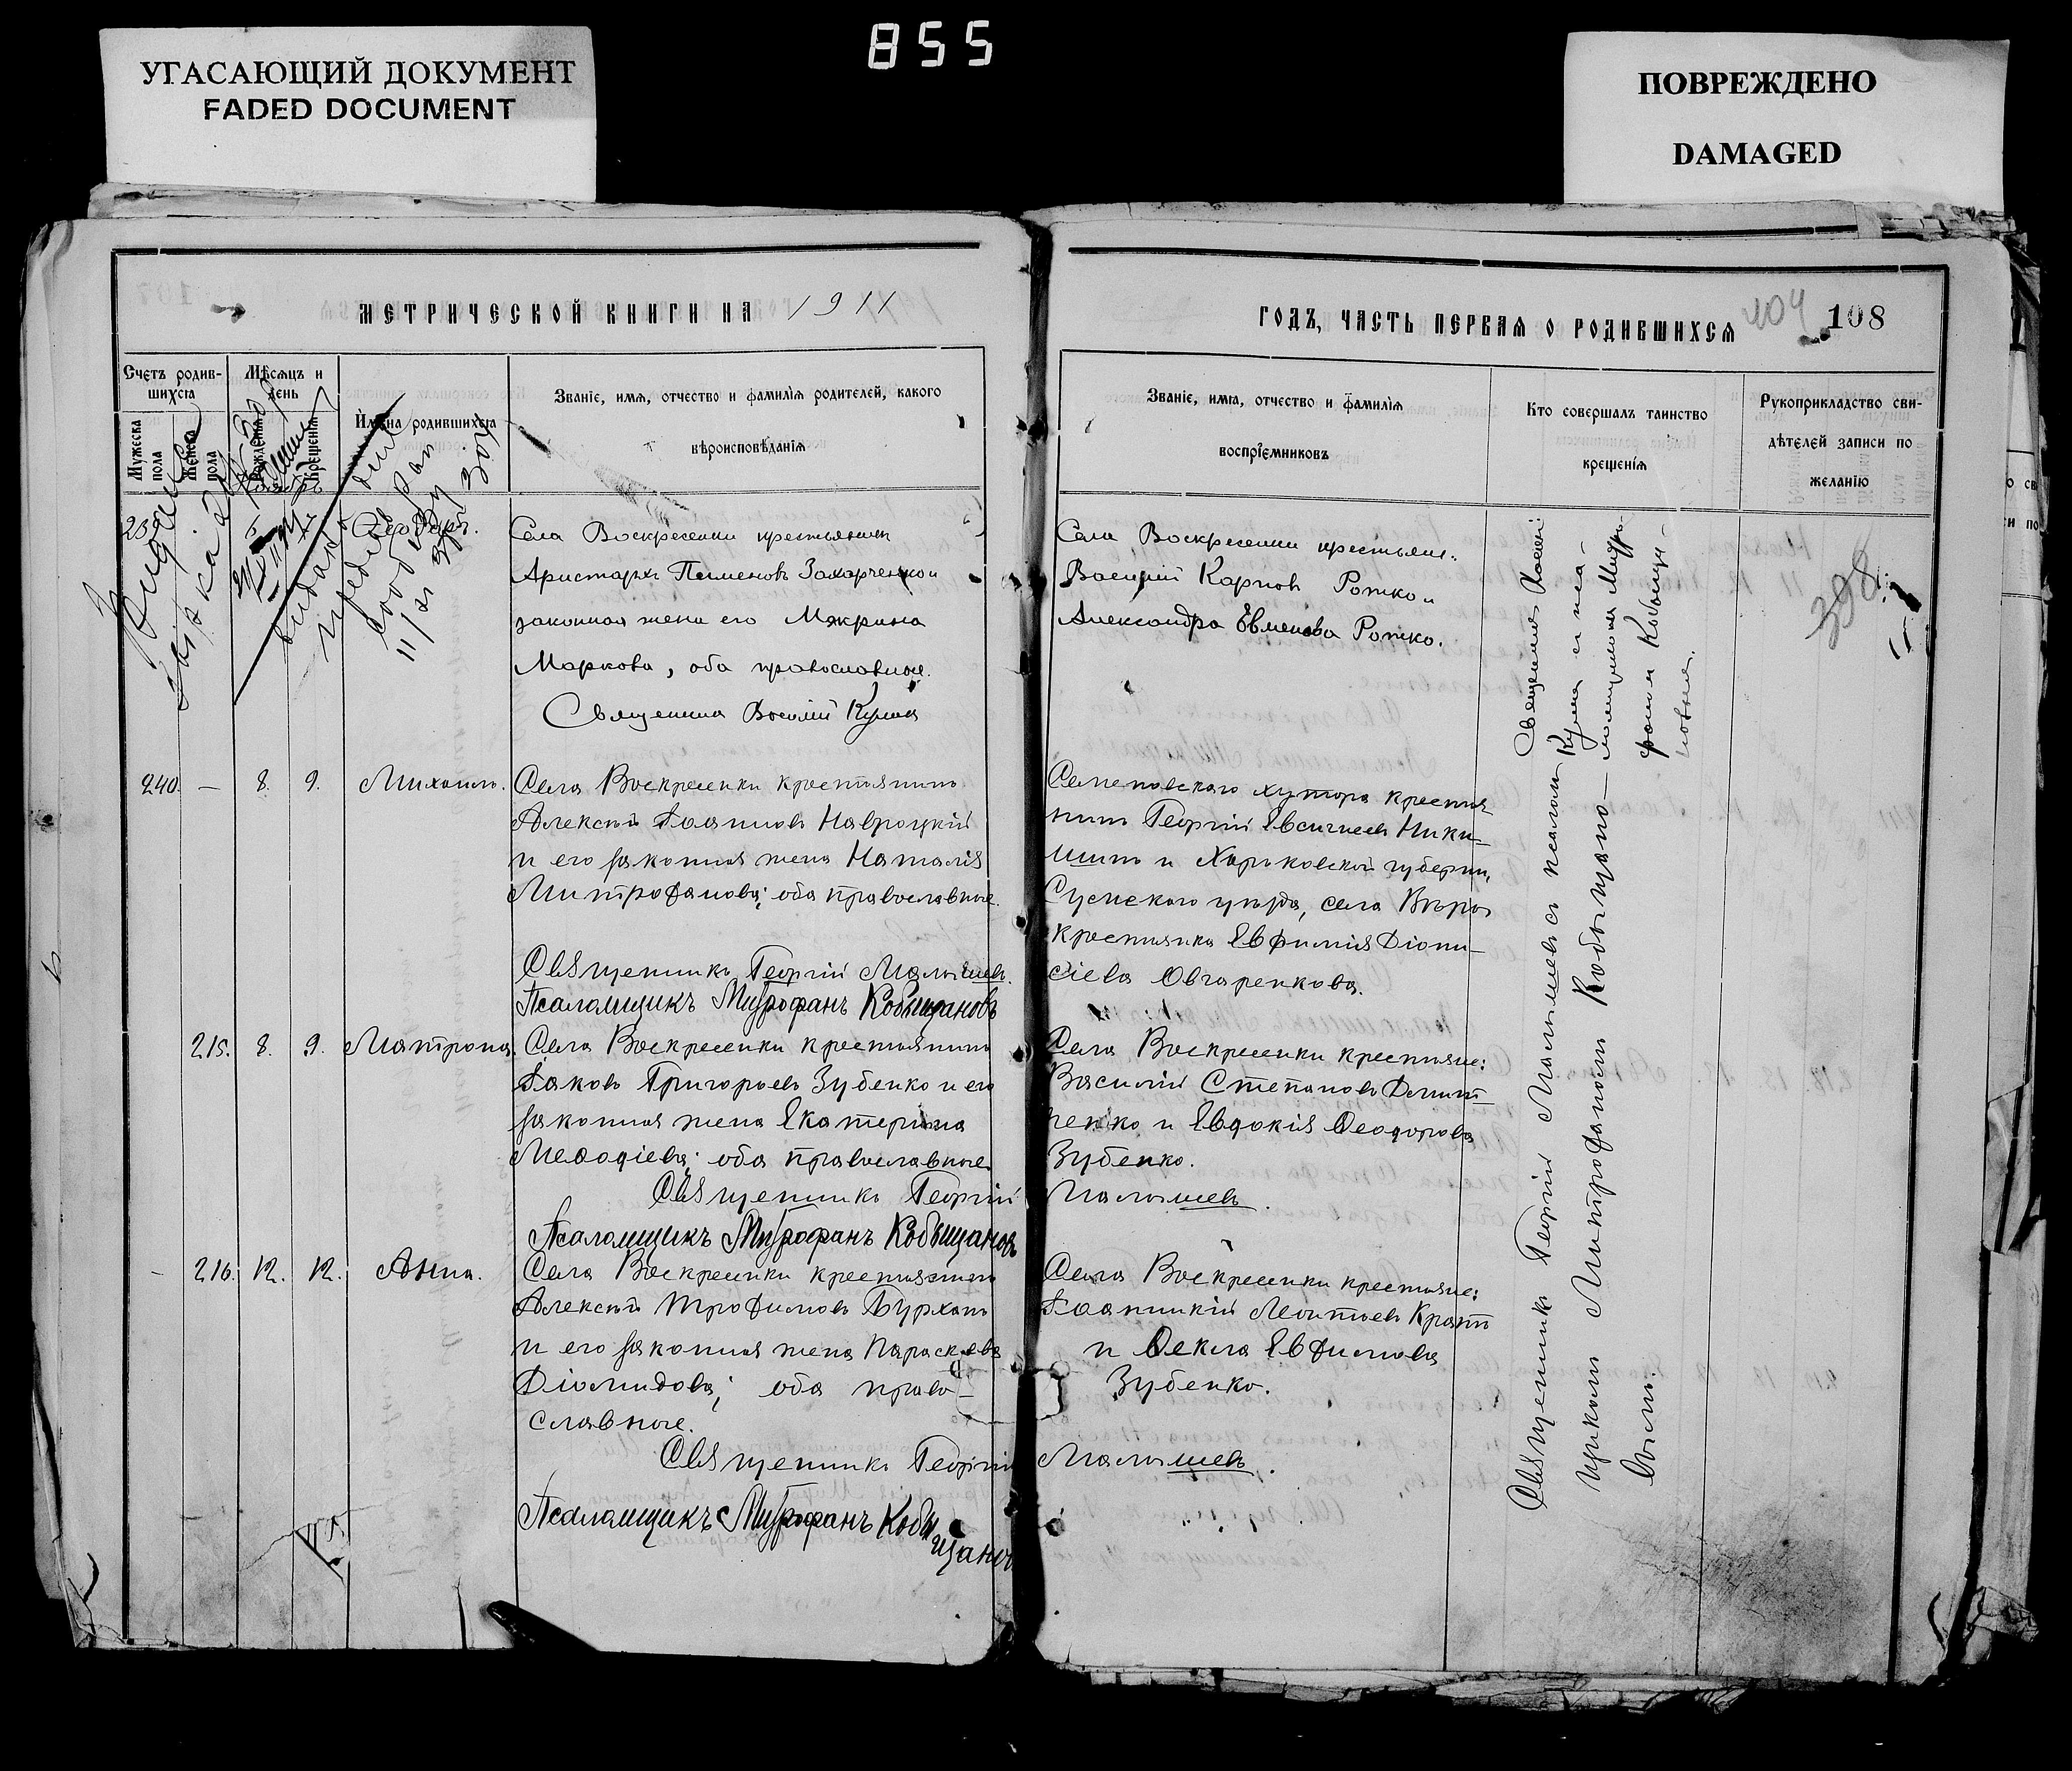 855
УГАСАЮЩИЙ ДОКУМЕНТ
FADED DOCUMENT
ПОВРЕЖДЕНО
DAMAGED
МЕТРИЧЕСКОЙ КНИГИ НА 1911
Счетъ родив-
шихся
Мѣсяцъ и
день
Мужеска
пола
Женска
пола
Рожденія
Крещенія
Имена родившихся
Званіе, имя, отчество и фамилія родителей, какого
вѣроисповѣданія
Ноябрь
Села Воскресенки крестьянин
Аристархъ Пименовъ Захарченко и
законная жена его Макрина
Маркова, оба православные.
Священник Василій Кулиш
240. — 8. 9. Михаилъ.
Села Воскресенки крестьянинъ
Алексѣй Іоанновъ Навроцкій
и его законная жена Наталія
Митрофанова; оба православные.
Священникъ Георгій Малышевъ.
Псаломщикъ Митрофанъ Кобыщановъ
215. 8. 9. Матрона.
Села Воскресенки крестьянинъ
Іаковъ Григорьевъ Зубенко и его
законная жена Екатерина
Меѳодіева; оба православные.
Священникъ Георгій Малышевъ.
Псаломщикъ Митрофанъ Кобыщановъ
- 216. 12. 12. Анна.
Села Воскресенки крестьянинъ
Алексѣй Трофимовъ Бурханъ
и его законная жена Параскева
Діомидова; оба право-
славные.
Священникъ Георгій Малышевъ.
Псаломщикъ Митрофанъ Кобы
щановъ
ГОДЪ, ЧАСТЬ ПЕРВАЯ О РОДИВШИХСЯ
404 108
Званіе, имя, отчество и фамилія
воспріемниковъ
Кто совершалъ таинство
крещенія
Рукоприкладство сви-
дѣтелей записи по
желанію
Села Воскресенки крестьяне:
Василій Карповъ Рожко и
Александра Евменова Рожко.
398
Семеновскаго хутора крестья
нинъ Георгій Евсигнеевъ Ники-
шинъ и Харьковской губерніи,
Сумскаго уѣзда, села
крестьянка Евфимія Діони-
сіева Овчаренкова.
Села Воскресенки крестьяне:
Василій Степановъ Дмит-
ренко и Евдокія Ѳеодорова
Зубенко.
Села Воскресенки крестьяне:
Іоанникій Леонтьевъ Кратъ
и Ѳекла Евфимова
Зубенко.
Священникъ Георгій Малышевъ съ псалом
щикомъ Митрофаномъ Кобыщано—
вымъ.